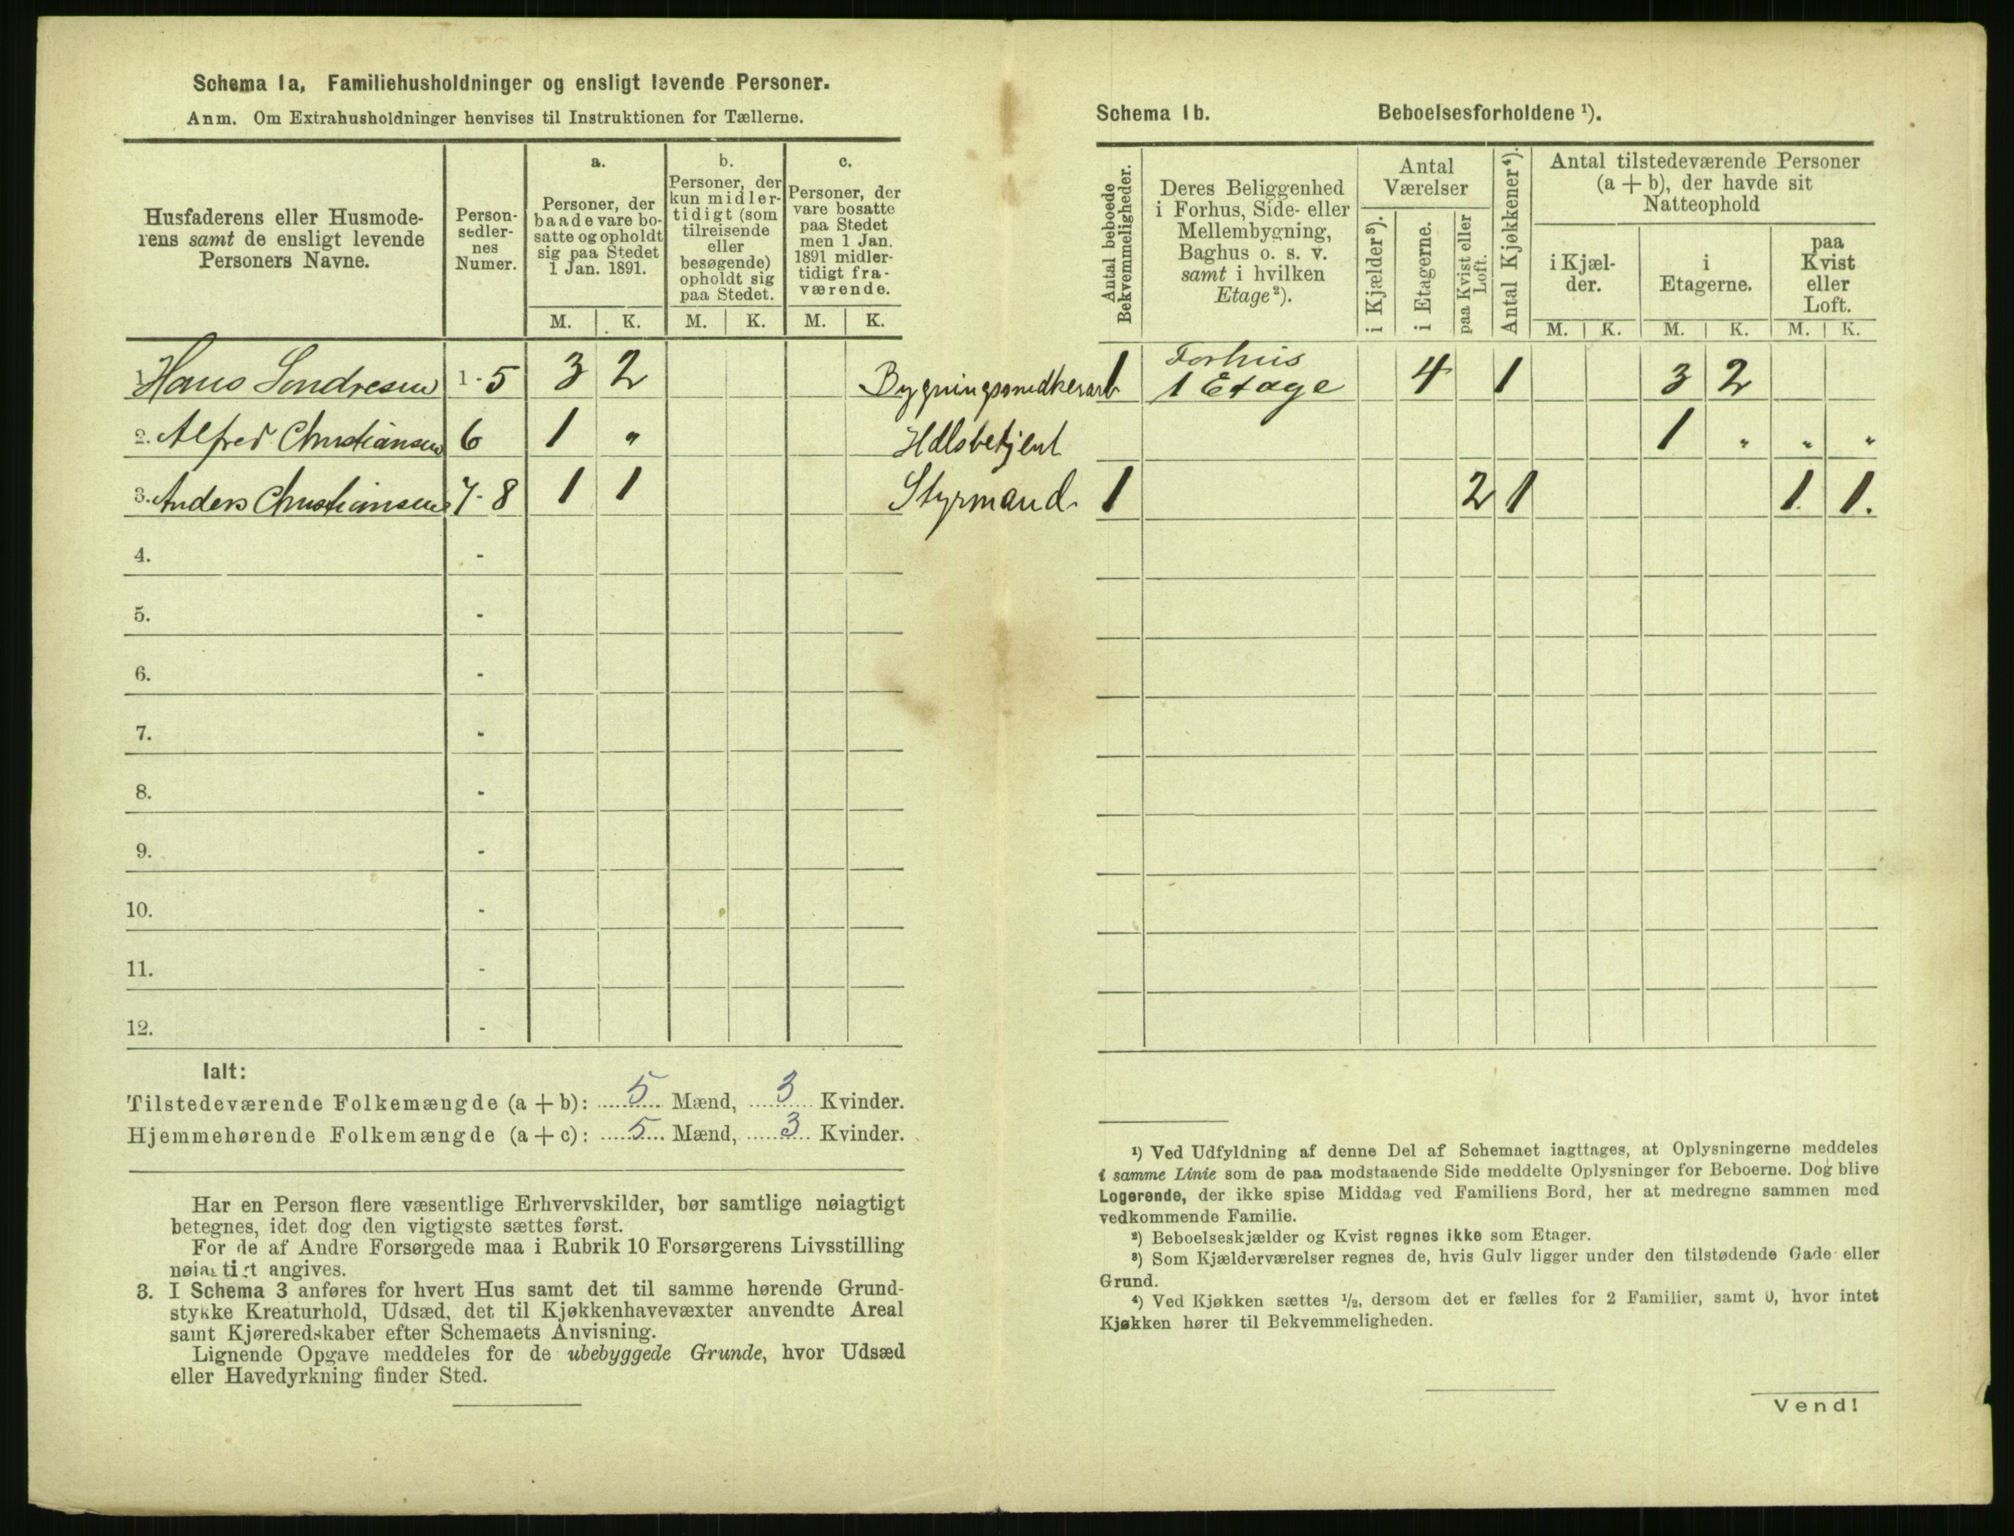 Schema 1a, Familiehusholdninger og ensligt levende Personer.
Anm. Om Extrahusholdninger henvises til Instruktionen for Tællerne.
Husfaderens eller Husmoderens samt de ensligt levende Personers Navne.
Personsedlernes Numer.
a.
Personer, der baade vare bosatte og opholdt sig paa Stedet 1 Jan. 1891.
b.
Personer, der kun midlertidigt (som tilreisende eller besøgende) opholdt sig paa Stedet.
c.
Personer, der vare bosatte paa Stedet men 1 Jan. 1891 midlertidigt fraværende.
M. K. M. K. M. K.
1. Hans Sondresen 1-5 3 2 Bygningssnedkerarb
2. Alfred Christiansen 6 1 " Hdlsbetjent
3. Anders Christiansen 7-8 1 1 Styrmand
4. -
5. -
6. -
7. -
8. -
9. -
10. -
11. -
12. -
Ialt:
Tilstedeværende Folkemængde (a + b): 5 Mænd, 3 Kvinder.
Hjemmehørende Folkemængde (a + c): 5 Mænd, 3 Kvinder.
Har en Person flere væsentlige Erhvervskilder, bør samtlige nøiagtigt
betegnes, idet dog den vigtigste sættes først.
For de af Andre Forsørgede maa i Rubrik 10 Forsørgerens Livsstilling
nøiagtigt angives.
3. I Schema 3 anføres for hvert Hus samt det til samme hørende Grund-
stykke Kreaturhold, Udsæd, det til Kjøkkenhavevæxter anvendte Areal
samt Kjøreredskaber efter Schemaets Anvisning.
Lignende Opgave meddeles for de ubebyggede Grunde, hvor Udsæd
eller Havedyrkning finder Sted.
Schema 1b. Beboelsesforholdene ¹).
Antal beboede Bekvemmeligheder.
Deres Beliggenhed i Forhus, Side- eller Mellembygning, Baghus o. s. v. samt i hvilken Etage ²).
Antal Værelser
i Kjælder ³).
i Etagerne.
paa Kvist eller Loft.
Antal Kjøkkener ⁴).
Antal tilstedeværende Personer (a + b), der havde sit Natteophold
i Kjælder.
i Etagerne.
paa Kvist eller Loft.
M. K. M. K. M. K.
1 Forhus 1 Etage 4 1 3 2
1 " " "
1 2 1 1 1.
¹) Ved Udfyldning af denne Del af Schemaet iagttages, at Oplysningerne meddeles
i samme Linie som de paa modstaaende Side meddelte Oplysninger for Beboerne. Dog blive
Logerende, der ikke spise Middag ved Familiens Bord, her at medregne sammen med
vedkommende Familie.
²) Beboelseskjælder og Kvist regnes ikke som Etager.
³) Som Kjælderværelser regnes de, hvis Gulv ligger under den tilstødende Gade eller
Grund.
⁴) Ved Kjøkken sættes ½, dersom det er fælles for 2 Familier, samt 0, hvor intet
Kjøkken hører til Bekvemmeligheden.
Vend!